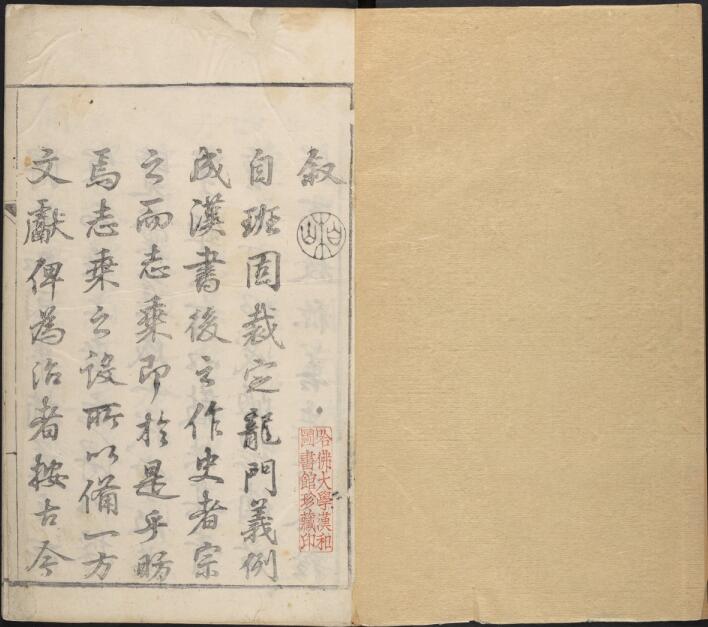 叙
自班固裁定龍門義例
成漢書後之作史者宗
之而志乗即於是乎昉
焉志乗之設所以備一方
文獻俾為治者按古今
哈佛大學漢和
圖書館珍藏印